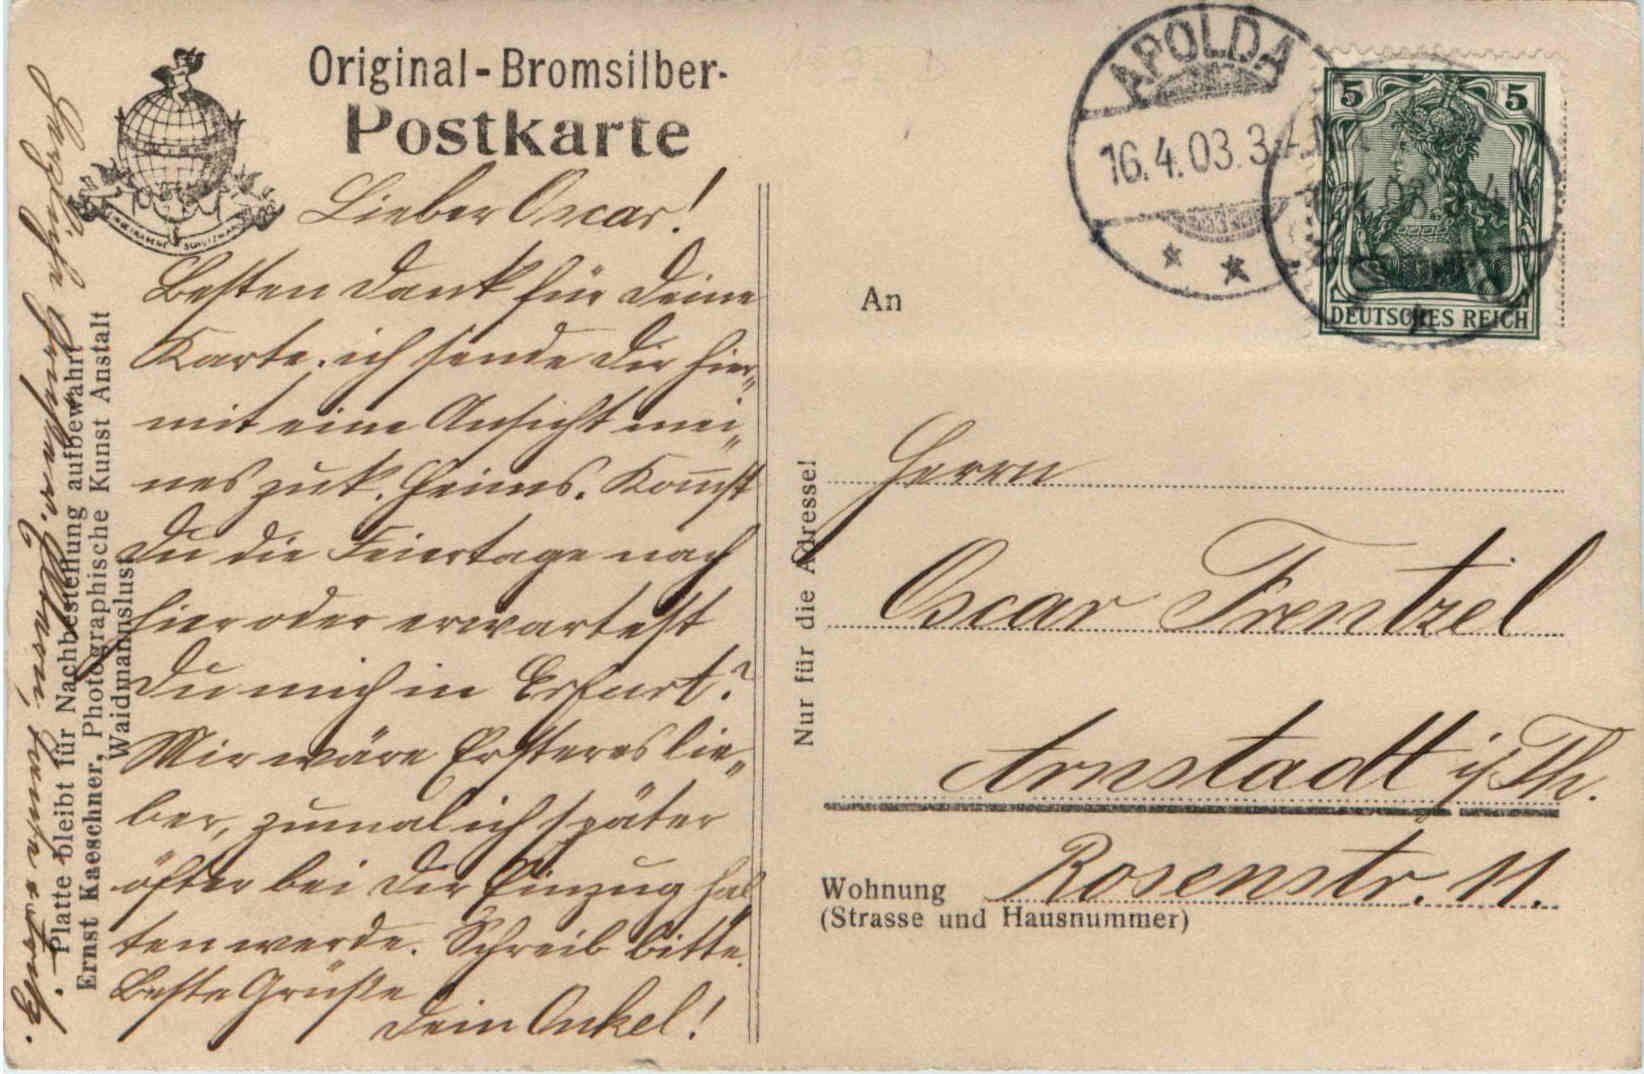 Original-Bromsilber-
Postkarte
Lieber Oscar!
Besten Dank für Deine
Karte. ich sende Dir hier-
mit eine Ansicht mei-
nes zuk. Heims. Kom̄st
Du die Feiertage nach
hier oder erwartest
Du mich in Erfurt?
Mir wäre Ersteres lie-
ber, zumal ich später
öfter bei Dir Einzug hal
ten werde. Schreib bitte.
Beste Grüße
Dein Onkel!
Herzliche
Platte bleibt für Nachbestellung aufbewahrt
Ernst Kaeschner, Photographische Kunst Anstalt
Waidmannslust
Nur für die Adresse!
APOLDA
16.4.03.3-4N
5 5
DEUTSCHES REICH
An
Herrn
Oscar Frentzel
Arnstadt i/Th.
Wohnung Rosenstr. 11.
(Strasse und Hausnummer)